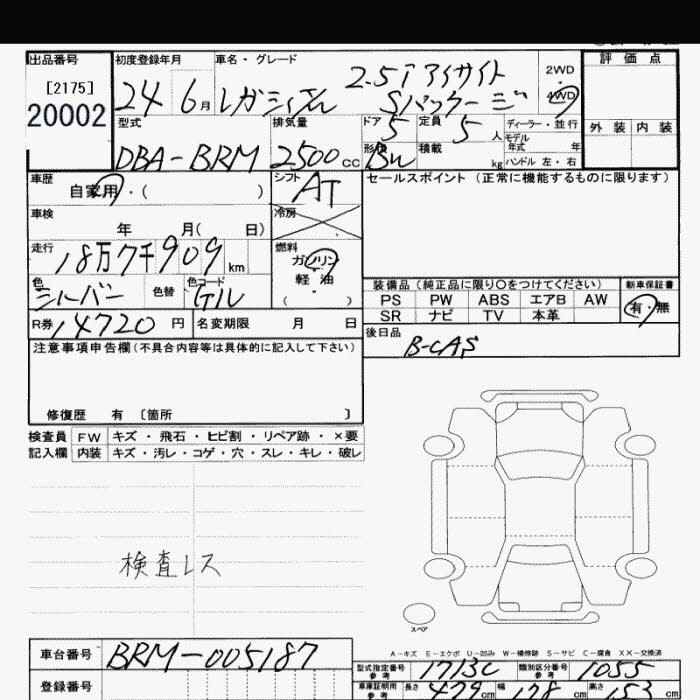 出品番号
[2175]
20002
初度登録年月
24 6月
車名・グレード
2.5i アイサイト
Sパッケージ
2WD
・
4WD
評価点
外装 内装
型式
DBA-BRM
排気量
2500cc
ドア 5
定員 5人
ディーラー・並行
モデル年式 年
形状 Bw
積載 kg
ハンドル 左・右
車歴
自家用・( )
シフト
AT
セールスポイント (正常に機能するものに限ります)
車検
年 月( 日)
冷房
走行
18万7千909km
燃料
ガソリン
軽油
( )
色
シルバー
色替
色コード
G1U
装備品 (純正品に限り○をつけてください)
新車保証書
PS PW ABS エアB AW
SR ナビ TV 本革
有・無
R券 14720円
名変期限 月 日
後日品
B-CAS
注意事項申告欄 (不具合内容等は具体的に記入して下さい)
修復歴 有 〔箇所 〕
検査員 FW キズ・飛石・ヒビ割・リペア跡・×要
記入欄 内装 キズ・汚レ・コゲ・穴・スレ・キレ・破レ
検査レス
スペア
A-キズ E-エクボ U-凹み W-補修跡 S-サビ C-腐食 XX-交換済
車台番号 BRM-005187
型式指定番号 参考 1713C
類別区分番号 参考 1055
登録番号
車庫証明用 参考 長さ 479cm 幅 178cm 高さ 153cm